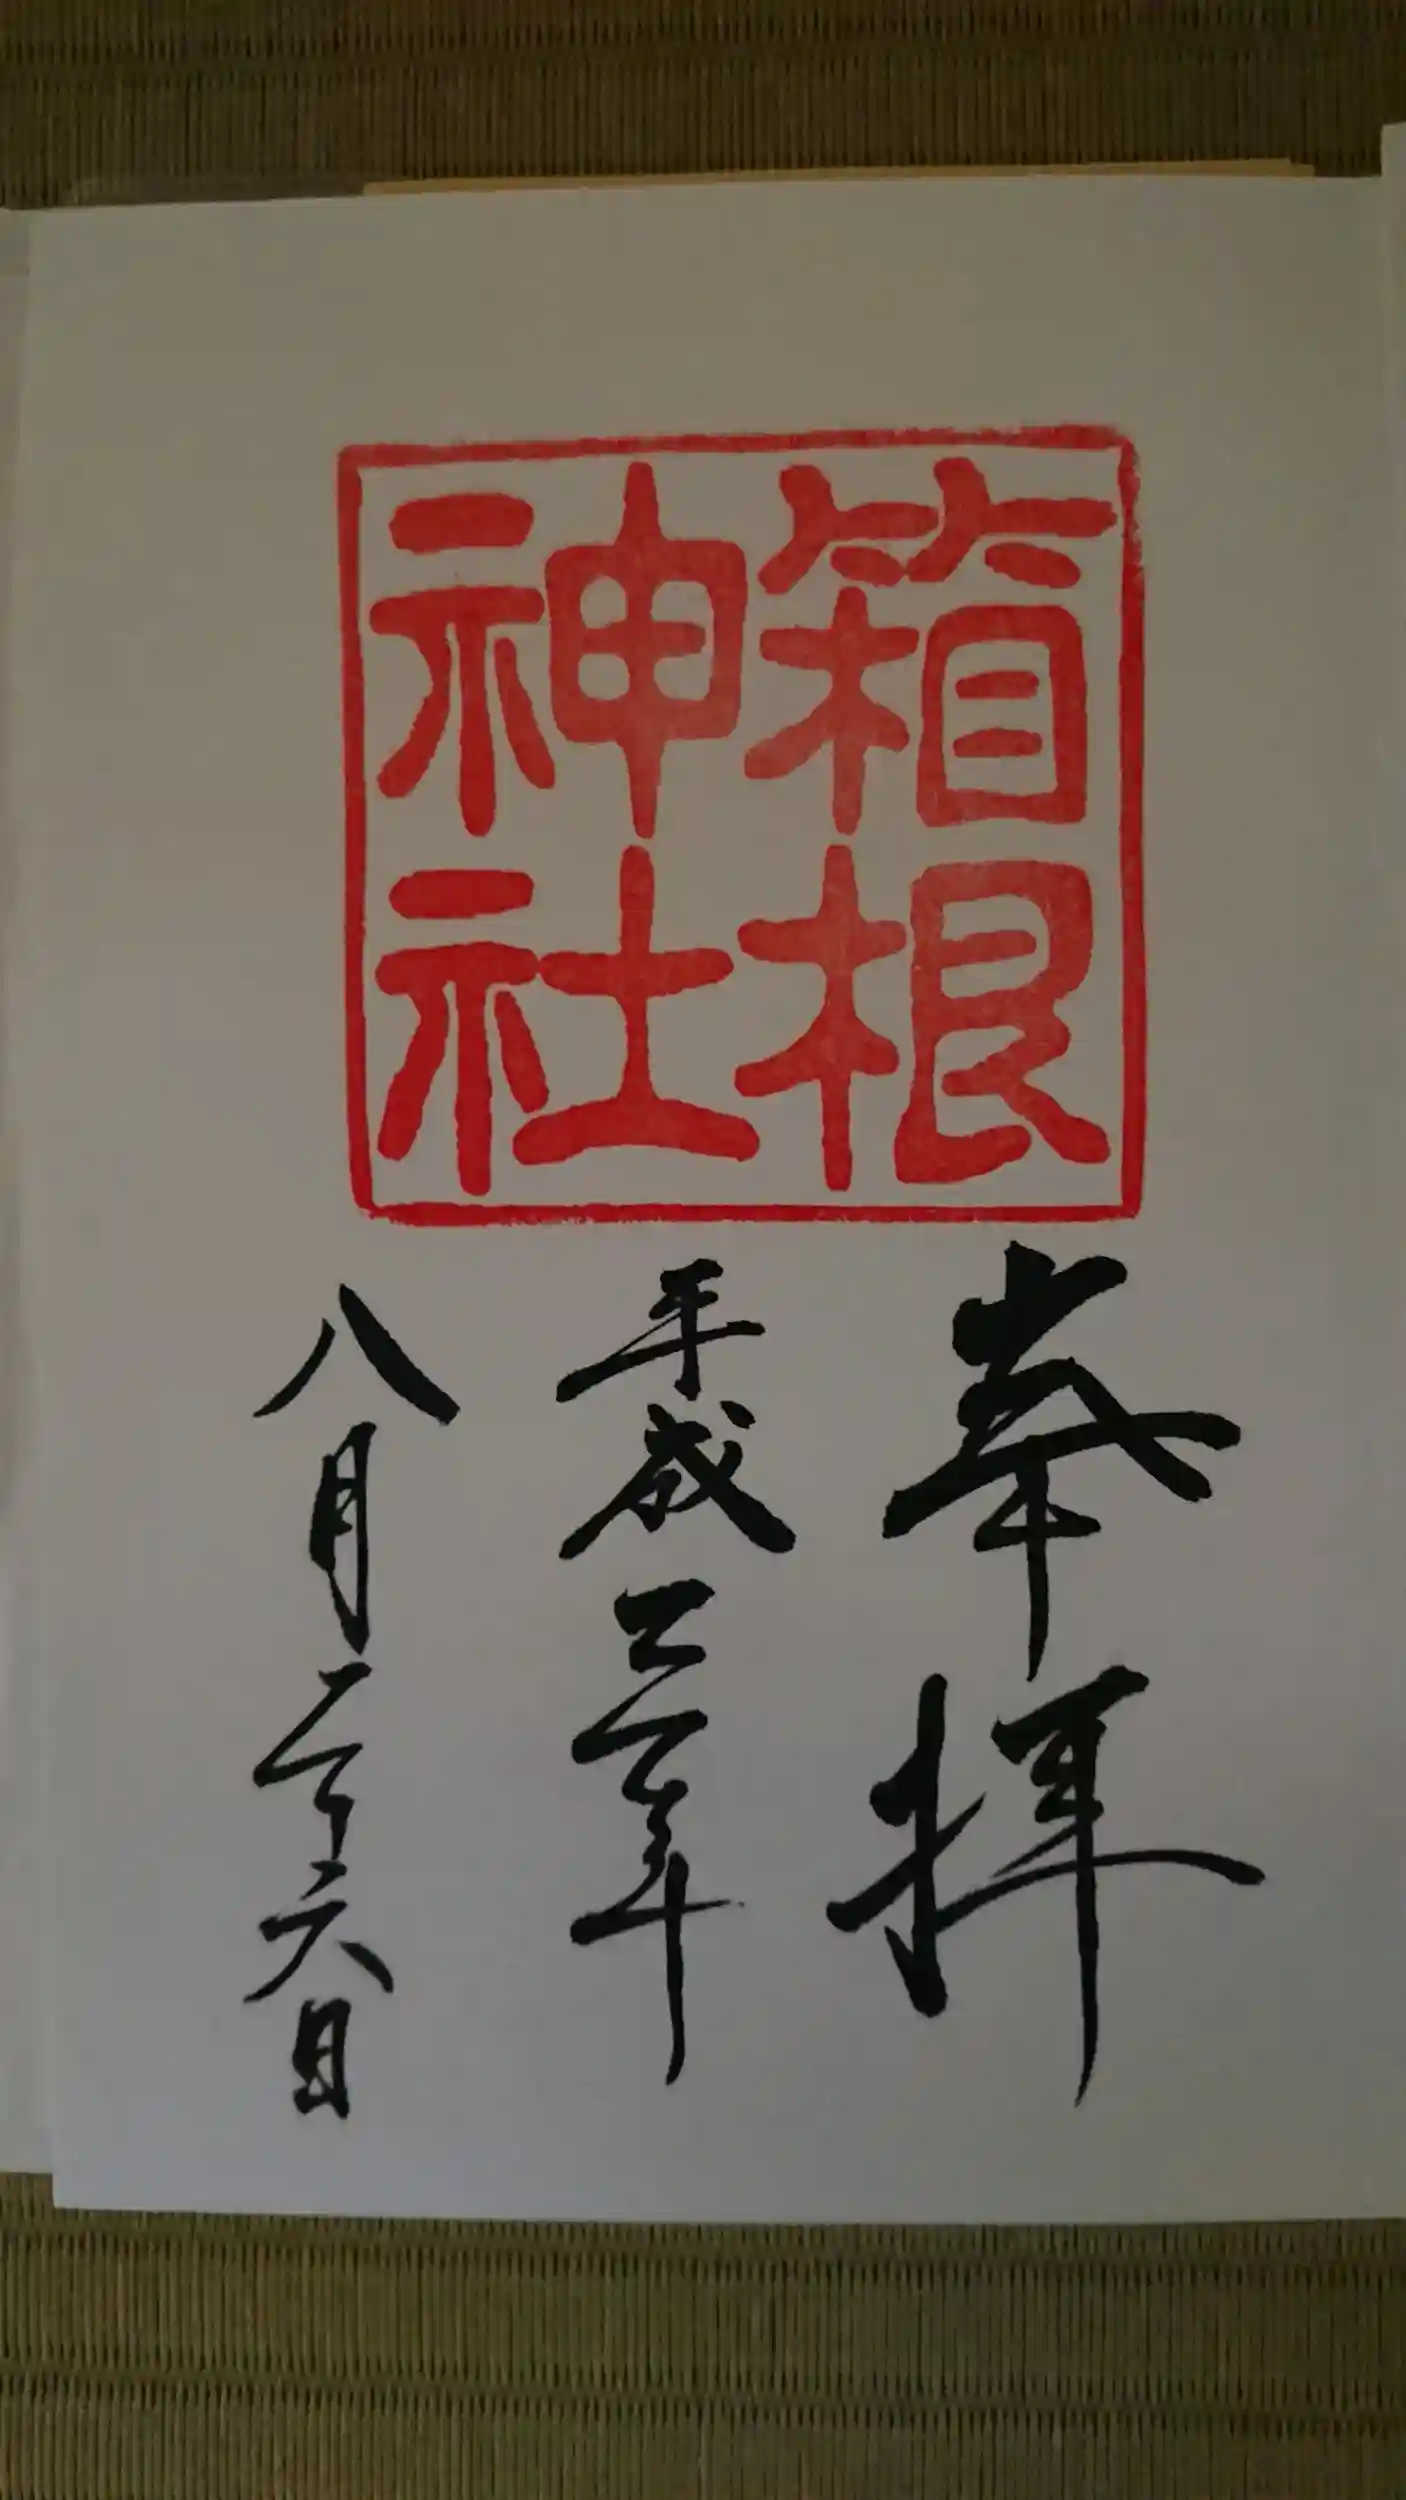 箱根
神社
奉拝
平成三十年
八月二十六日